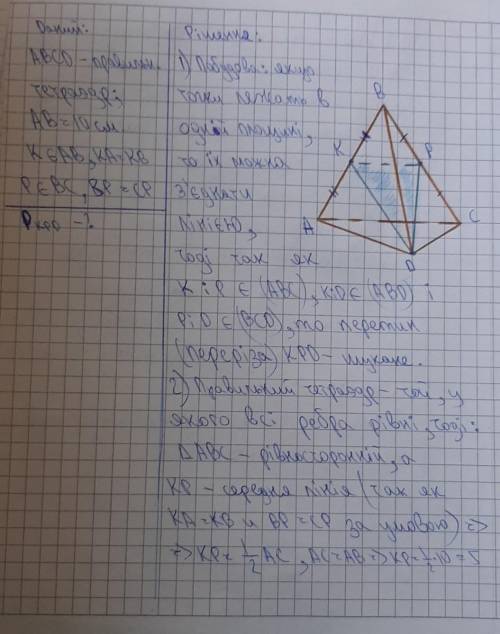 Даний:
ABCD – правильн.
тетраедр;
AB=10см
K∈AB, KA=KB
P∈BC, BP=CP
P KPD -?
Рішення:
1) Побудова: якщо
точки лежать в
одній площині,
то їх можна
з'єднати
лінією,
тоді так як
K і P ∈ (ABC), K і D ∈ (ABD) і
P і D ∈ (BCD), то перетин
(переріза) KPD – шукане.
2) Правильний тетраедр – той, у
якого всі ребра рівні, тоді:
ΔABC – рівносторонній, а
KP – середня лінія (так як
KA=KB и BP=CP за умовою) =>
=> KP=1/2 AC, AC=AB => KP=1/2·10=5
B
K
P
A
C
D